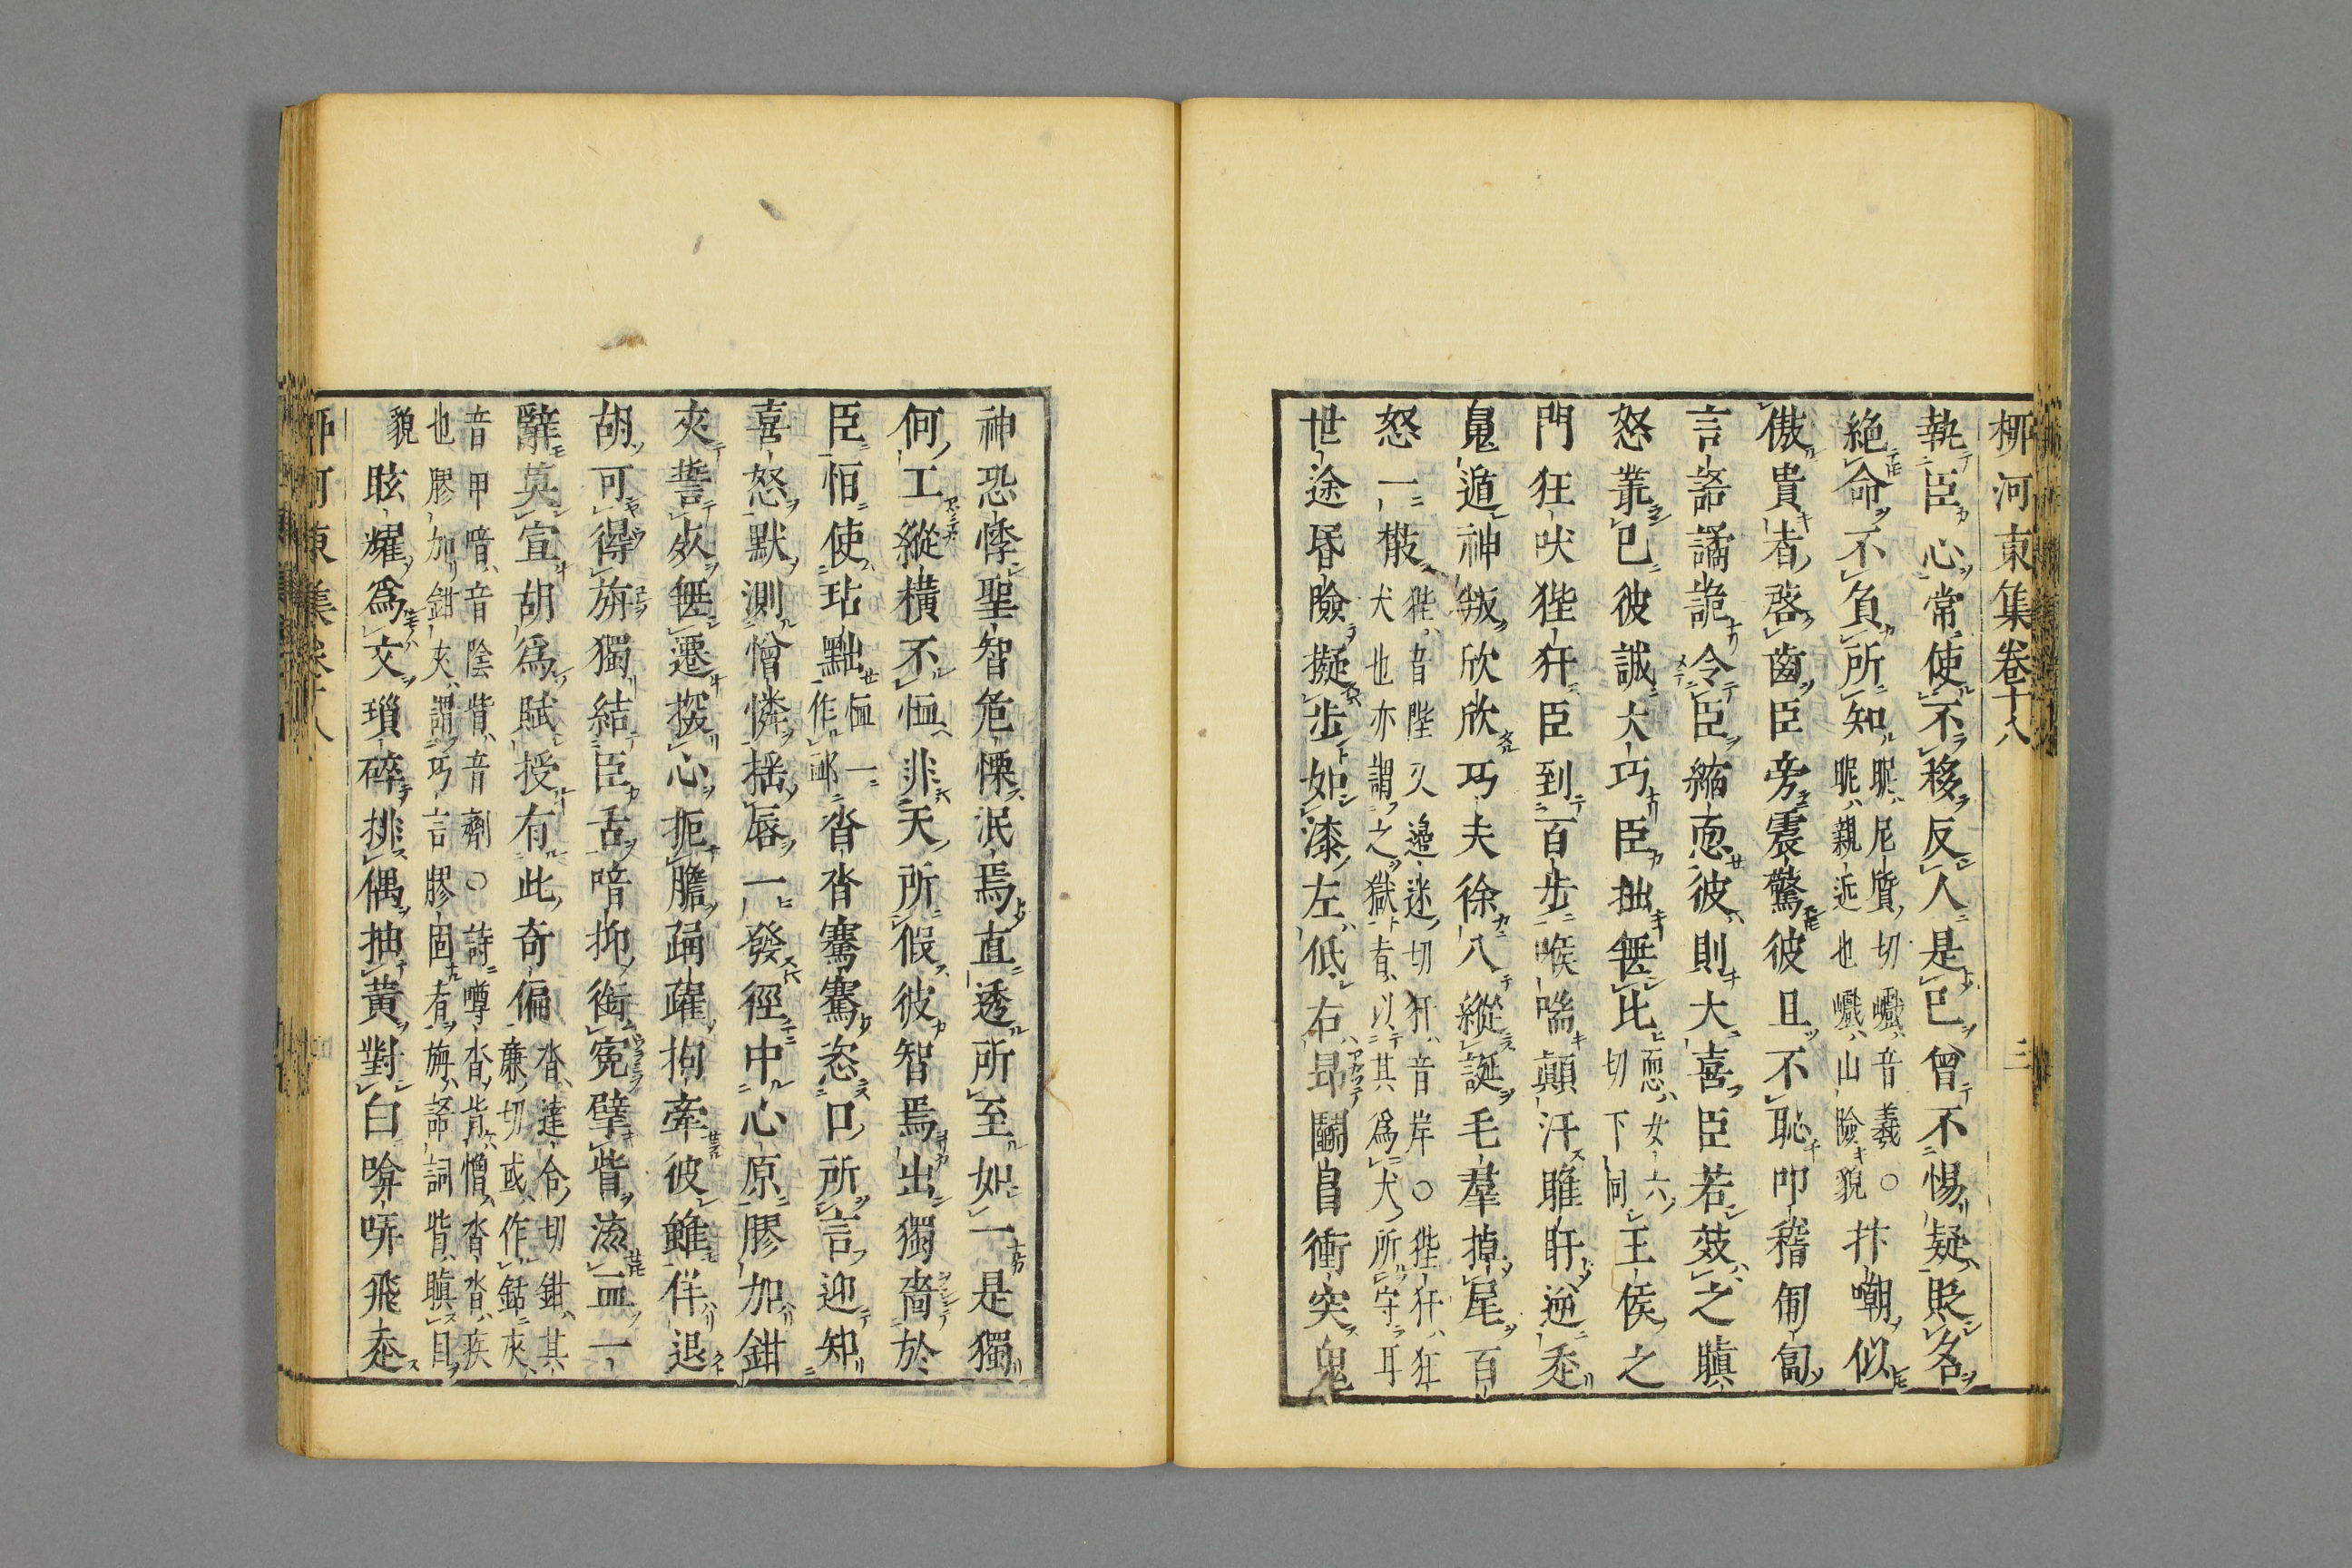 柳河東集卷十八 三
執臣心常使不移反人是已曾不惕疑貶名
絶命不負所知昵尼質切巇音義○昵親近也巇山險貌抃嘲似
傲貴者啓齒臣旁震驚彼且不恥叩稽匍匐
言語譎詭令臣縮恧彼則大喜臣若效之瞋
怒叢已彼誠大巧臣拙無比恧女六切下同王侯之
門狂吠狴犴臣到百步喉喘顛汗睢盱逆走
鬼遁神叛欣欣巧夫徐入縱誕毛羣掉尾百
怒一散狴音陛又邊迷切犴音岸○狴犴狂犬也亦謂之獄者以其爲犬所守耳
世途昏險擬步如漆左低右昂鬬冒衝突鬼
神恐悸聖智危慄泯焉直透所至如一是獨
何工縱橫不恤非天所假彼智焉出獨嗇於
臣恒使玷黜恤一作邺沓沓騫騫恣口所言迎知
喜怒默測憎憐揺唇一發徑中心原膠加鉗
夾誓死無遷探心扼膽踊躍拘牽彼雖佯退
胡可得旃獨結臣舌喑抑銜寃擘眥流血一
辭莫宣胡爲賦授有此奇偏沓達合切鉗其廉切或作銛夾
音甲喑音陰眥音劑○詩噂沓背憎沓沓疾
也膠加鉗夾謂巧言膠固有旃語詞眥瞋目
貌眩耀爲文瑣碎排偶抽黃對白啽哢飛走
柳河東集卷十八